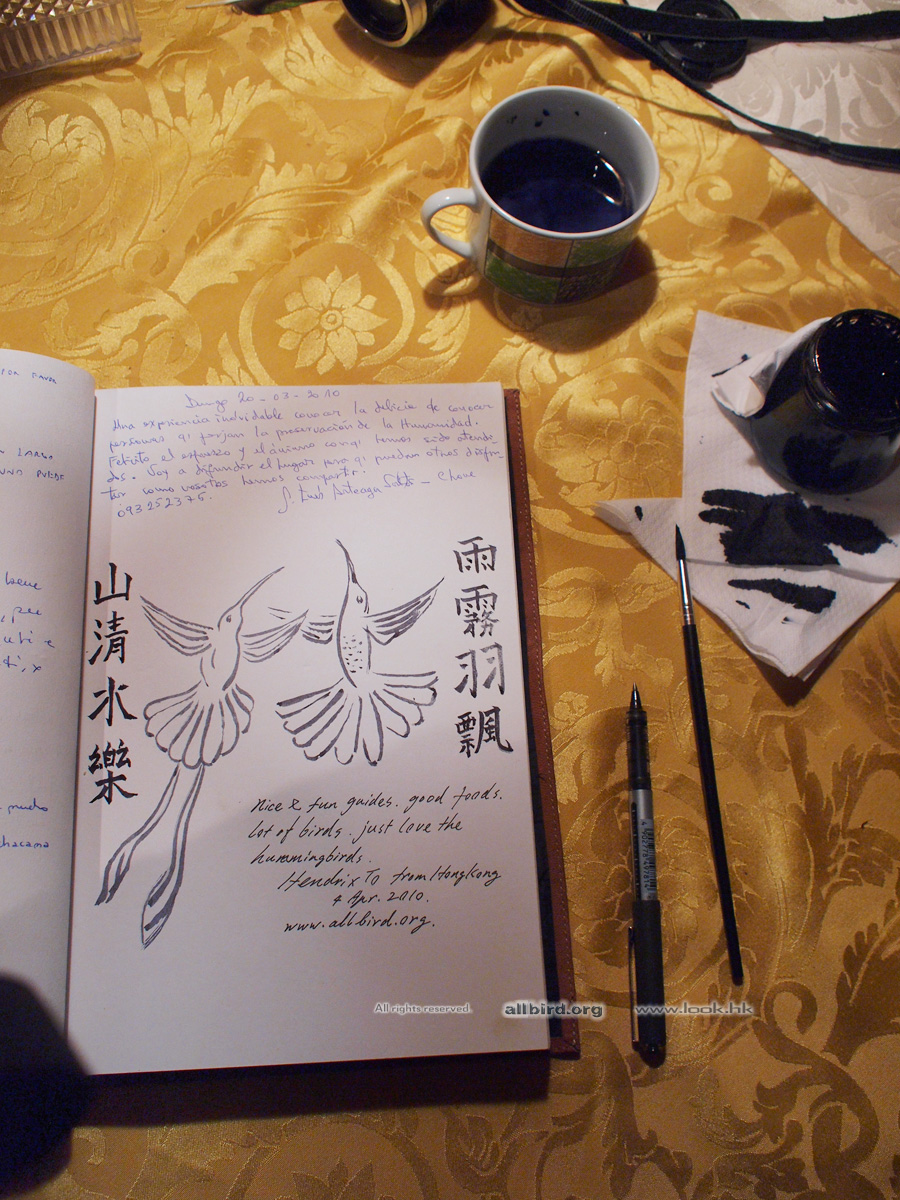 POR FAVOR
LARGA
UNA PUEDE
bene
per
mucho
20 - 03 - 2010
Una experiencia inolvidable conocer la delicia de conocer
personas q' forjan la preservación de la Humanidad.
Felicito el esfuerzo y el ánimo con q' hemos sido atendi-
dos. Voy a difundir el lugar para q' puedan otros disfru-
tar como vosotros hemos compartir.
093252375.
Luis Arteaga
山清水樂
雨霧羽飄
Nice & fun guides. good foods.
lot of birds. just love the
hummingbirds.
Hendrix To from HongKong
4 Apr. 2010.
www.allbird.org.
All rights reserved. allbird.org www.look.hk